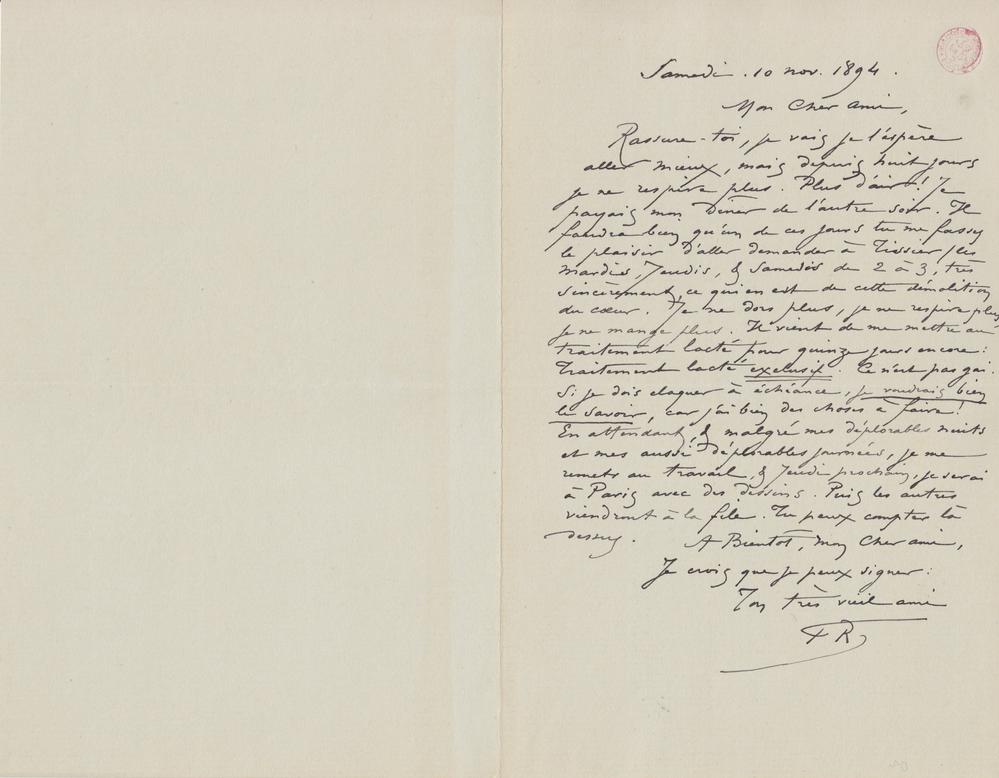 Samedi . 10 nov. 1894 .
Mon Cher ami,
Rassure-toi, je vais je l'espère
aller mieux, mais depuis huit jours
je ne respire plus. Plus d'air! Je
payais mon Dîner de l'autre soir. Il
faudra bien qu'un de ces jours tu me fasses
le plaisir d'aller demander à Tissier (les
mardis, Jeudis, & Samedis de 2 à 3, très
sincèrement, ce qu'en est de cette démolition
du cœur. Je ne dors plus, je ne respire plus
je ne mange plus. Il vient de me mettre au
traitement lacté pour quinze jours encore :
Traitement lacté exclusif. Ce n'est pas gai.
Si je dois claquer à échéance, je voudrais bien
le savoir, car j'ai bien des choses à faire!
En attendant, & malgré mes déplorables nuits
et mes aussi déplorables journées, je me
remets au travail, & Jeudi prochain, je serai
à Paris avec des dessins. Puis les autres
viendront à la file. Tu peux compter là
dessus.     A Bientôt, mon Cher ami,
Je crois que je peux signer :
Ton très vieil ami
FR